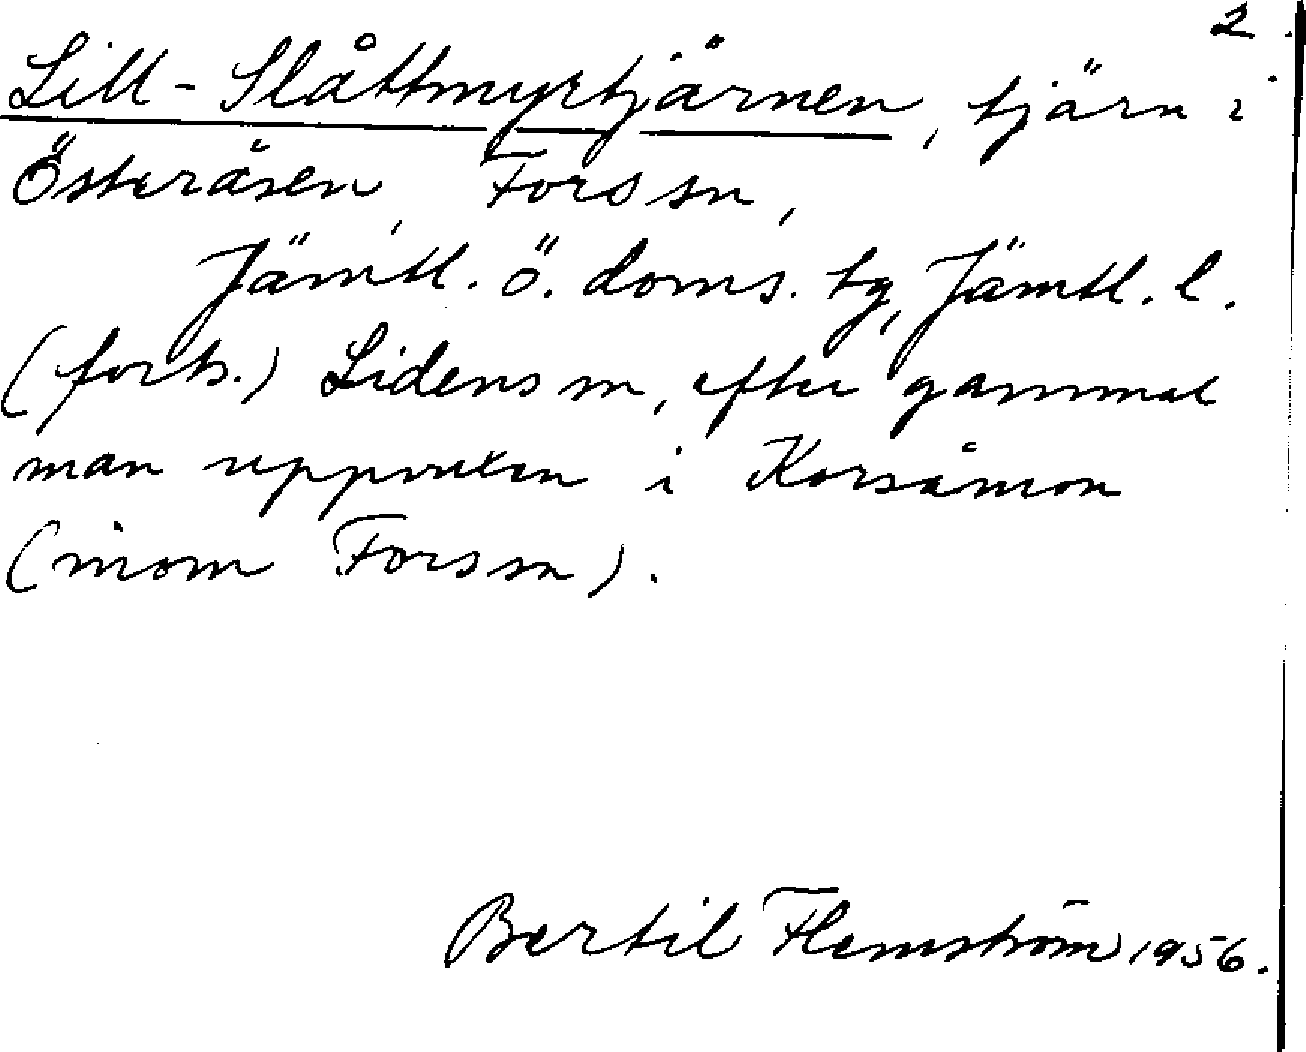 2.
Lill-Slåttmyrtjärnen, tjärn i
Österåsen, Fors sn,
Jämtl. ö. doms. tg, Jämtl. l.
(forts.) Lidens sn, efter gammal
man uppvuxen i Korsåmon
(inom Fors sn).
Bertil Flemström 1956.